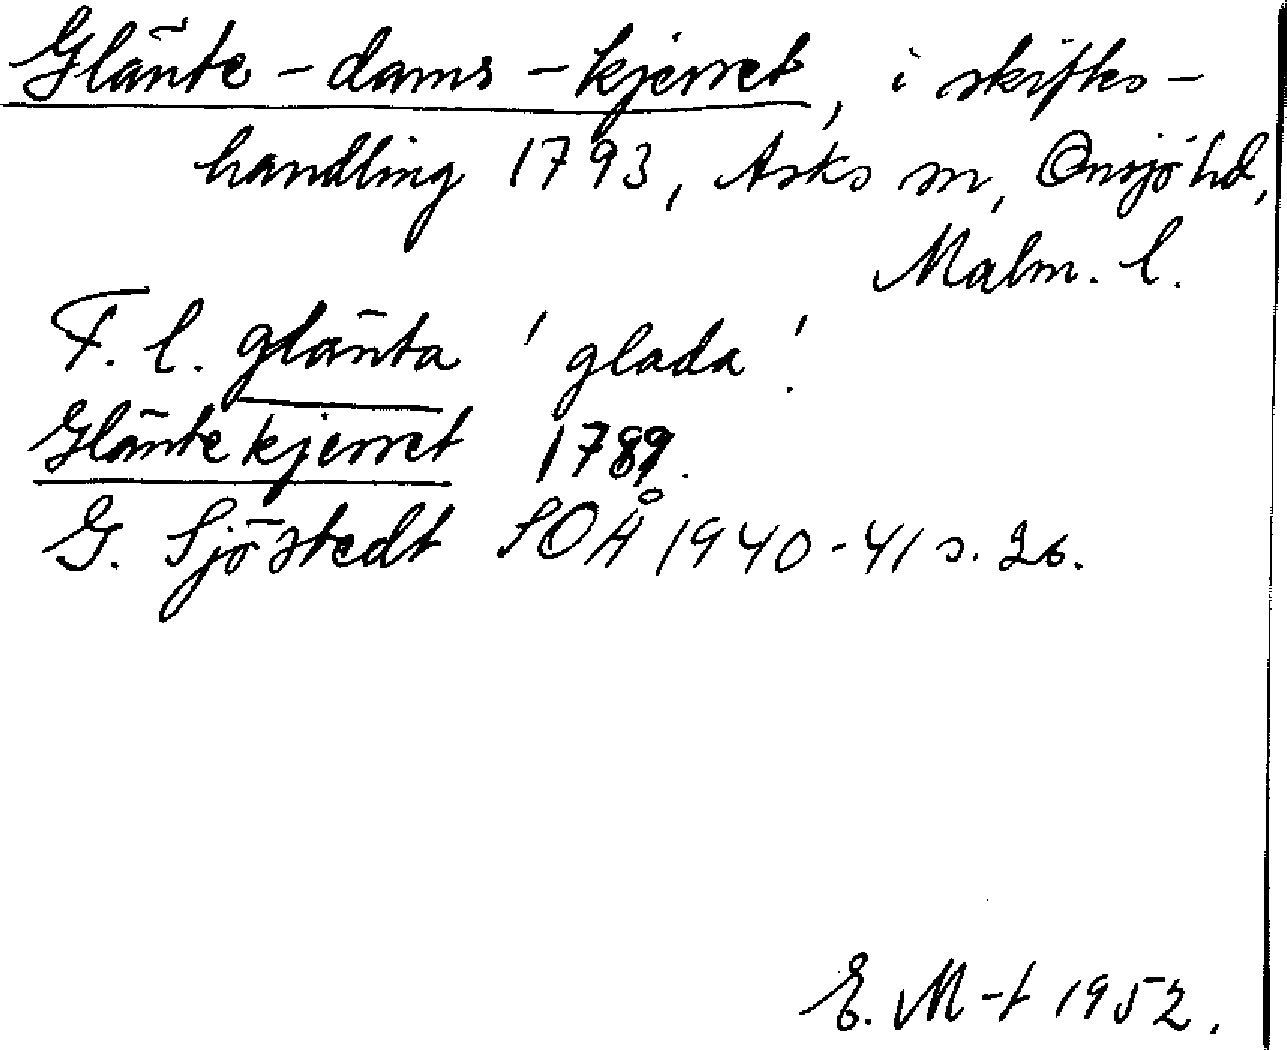 Glänte-dams-kjerret, i skiftes-
handling 1793, Asks sn, Onsjö hd,
Malm. l.
F. l. glänta 'glada'.
Gläntekjerret 1789.
G. Sjöstedt SOÅ 1940-41 s. 26.
E. M-t 1952.